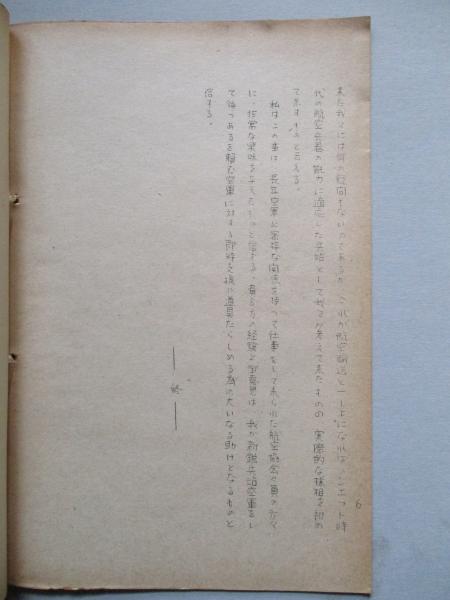 また我々には何の疑問もないのであるが、これが航空輸送と一しよになれば、ジエット時
代の航空兵器の能力に適応した兵站として我々が考えて来たものの、実際的な様相を初め
て示すものと云える。
私はこの事は、長年空軍と密接な関係を持つて仕事をして来られた航空協会々員の方々
に、非常な興味を与えたものと信ずる。貴方方の経験と御意見は、我が新鋭兵站空軍をし
て後つあるを頼む空軍に対する即時支援の道具たらしめる為の大いなる助けとなるものと
信ずる。
— 終 —
6